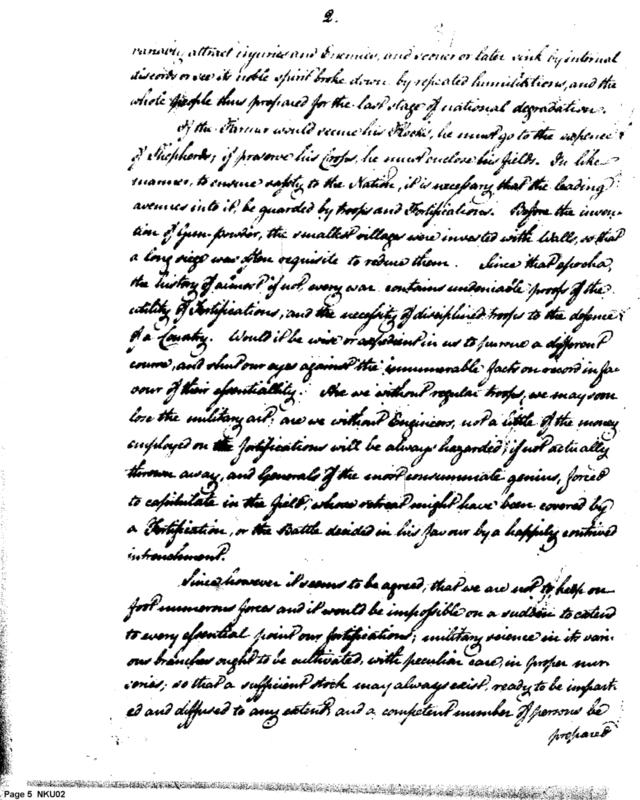 2.
variably attract injuries and Enemies, and sooner or later sink by internal
discords or see its noble spirit broke down by repeated humiliations, and the
whole people thus prepared for the last stage of national degradation.
If the Farmer would secure his Flocks, he must go to the expence
of Shepherds; if preserve his Crops, he must enclose his fields. In like
manner, to ensure safety to the Nation, it is necessary that the leading
avenues into it, be guarded by troops and Fortifications. Before the inven-
tion of Gun-powder, the smallest villages were invested with Walls, so that
a long siege was often requisite to reduce them. Since that epocha,
the history of almost if not every war contains undeniable proofs of the
utility of Fortifications, and the necessity of disciplined troops to the defence
of a Country. Would it be wise or expedient in us to pursue a different
course, and shut our eyes against the innumerable facts on record in fa-
vour of their essentiallity: Are we without regular troops, we may soon
lose the military art; are we without Engineers, not a little of the money
employed on the fortifications will be always hazarded, if not actually
thrown away, and Generals of the most consummate genius, forced
to capitulate in the field, whose retreat might have been covered by
a Fortification, or the Battle decided in his favour by a happily contrived
intrenchment.
Since however it seems to be agreed, that we are not to keep on
foot numerous forces and it would be impossible on a sudden to extend
to every essential point our fortifications; military science in its vari-
ous branches ought to be cultivated, with peculiar care, in proper nur-
series; so that a sufficient stock may always exist, ready to be impart-
ed and diffused to any extent, and a competent number of persons be
prepared
Page 5 NKU02